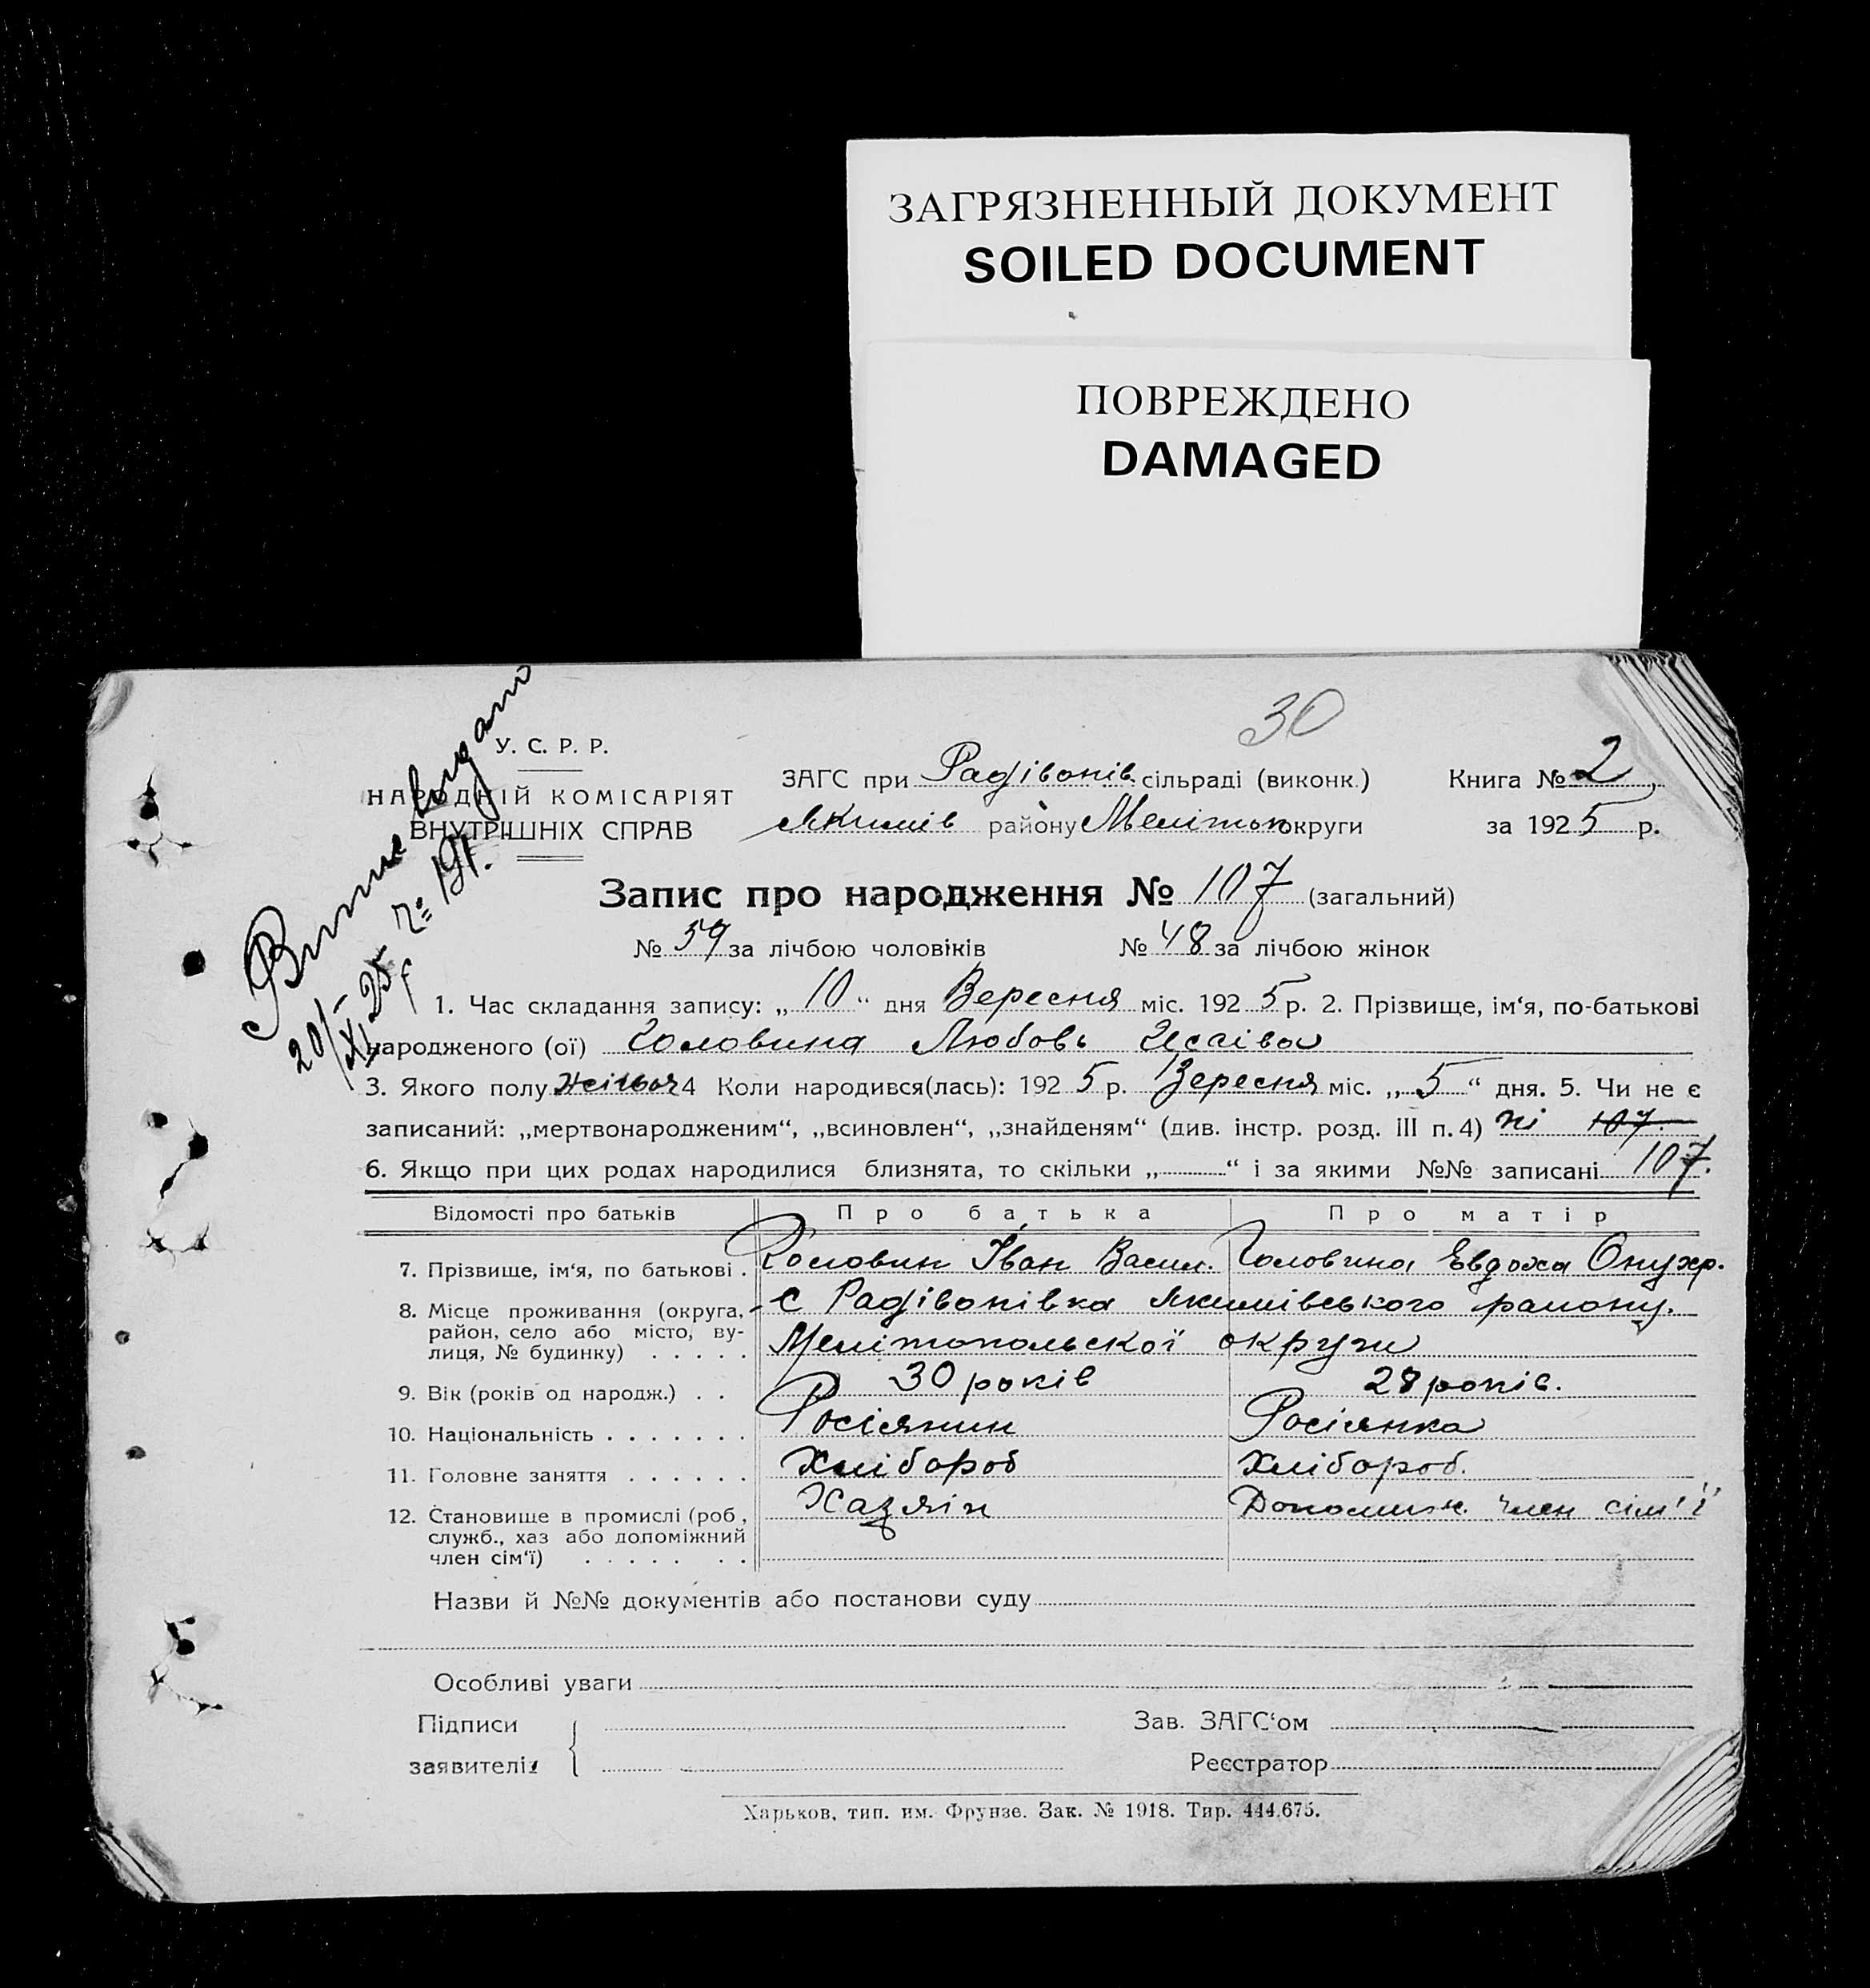 ЗАГРЯЗНЕННЫЙ ДОКУМЕНТ
SOILED DOCUMENT
ПОВРЕЖДЕНО
DAMAGED
30
У. С. Р. Р.
НАРОДНІЙ КОМІСАРІЯТ
ВНУТРІШНІХ СПРАВ
ЗАГС при Радівонів. сільраді (виконк.) Книга № 2
Якимів району Мелітоп округи за 1925 р.
Запис про народження № 107 (загальний)
№ 59 за лічбою чоловіків № 48 за лічбою жінок
1. Час складання запису: „10“ дня Вересня міс. 1925 р. 2. Прізвище, ім‘я, по-батькові
народженого (ої) Головина Любовь
3. Якого полу жіноч 4 Коли народився(лась): 1925 р. Вересня міс. „5“ дня. 5. Чи не є
записаний: „мертвонародженим“, „всиновлен“, „знайденям“ (див. інстр. розд. III п. 4) ні 107
6. Якщо при цих родах народилися близнята, то скільки „ “ і за якими №№ записані 107.
Відомості про батьків Про батька Про матір
7. Прізвище, ім‘я, по батькові . Головин Іван Васил. Головина Евдоха Онухр.
8. Місце проживання (округа, район, село або місто, ву-лиця, № будинку) . . . . . с Радівонівка Якимівського району.
Мелітопольскої округи
9. Вік (років од народж.) . . 30 років 28 років.
10. Національність . . . . . . . Росіянин Росіянка
11. Головне заняття . . . . . . Хлібороб Хлібороб.
12. Становище в промислі (роб, служб., хаз або допоміжний член сім‘ї) . . . . . . . Хазяїн Допоміж. член сім'ї
Назви й №№ документів або постанови суду
Особливі уваги
Підписи
заявителів
Зав. ЗАГС‘ом
Реєстратор
Харьков, тип. им. Фрунзе. Зак. № 1918. Тир. 444.675.
20/XI 25 р № 191.